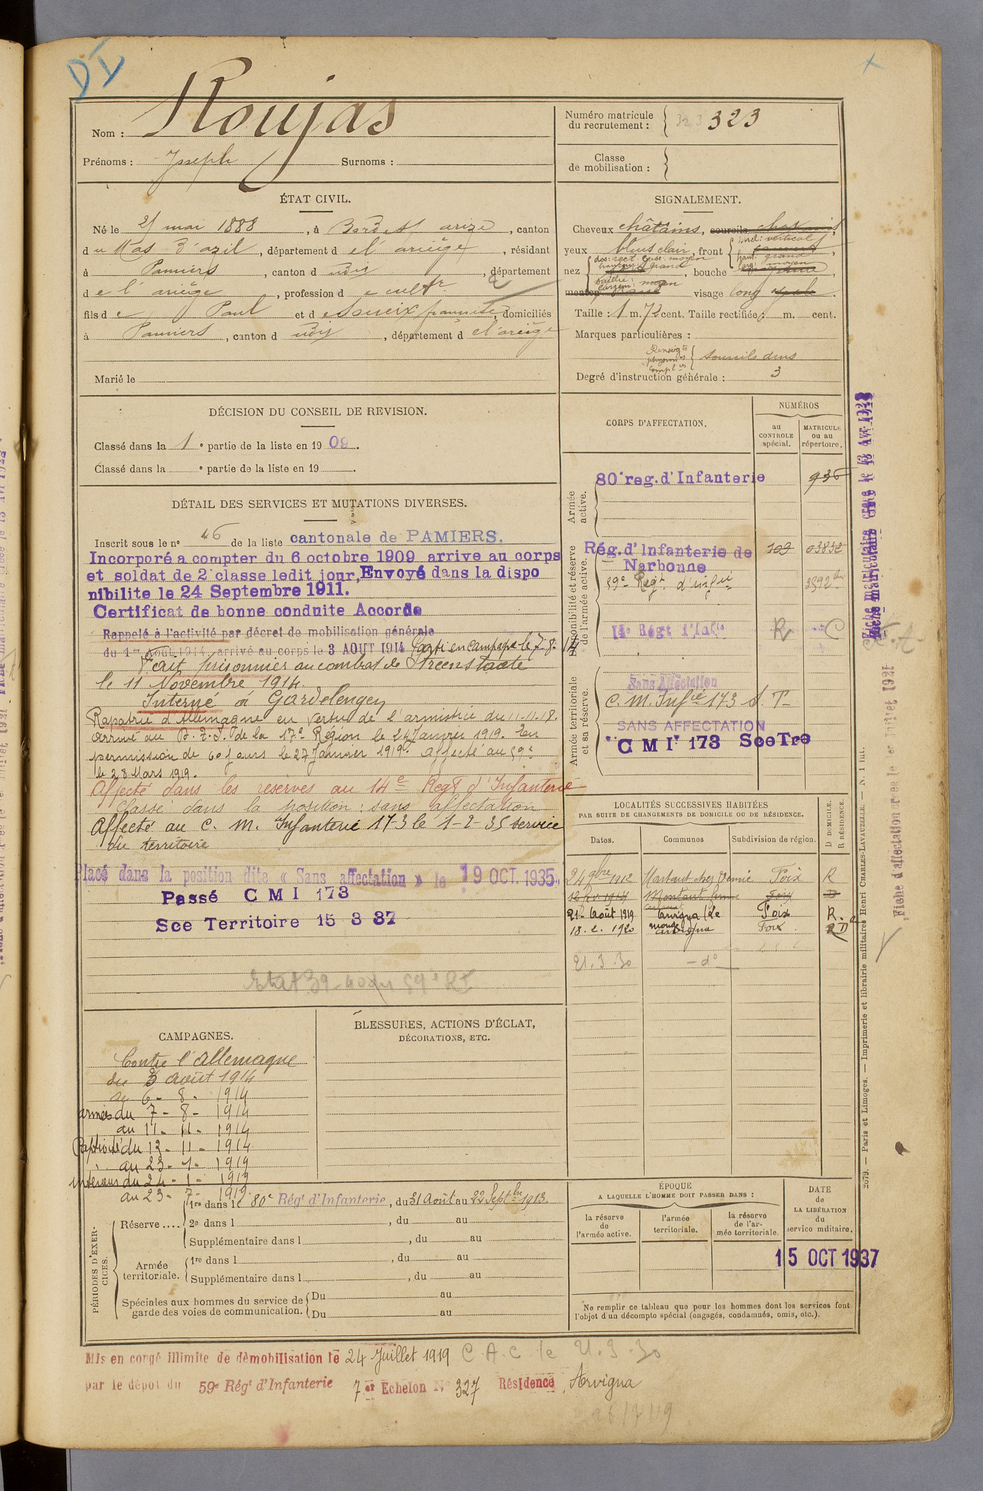 Roujas
Nom :
Prénoms : Joseph Surnoms :
Numéro matricule
du recrutement : 323
Classe
de mobilisation :
ÉTAT CIVIL.
Né le 21 mai 1888, à Bordes s arize, canton
du Mas d'azil, département de l'ariège, résidant
à Pamiers, canton d udy, département
de l'ariège, profession de cultr
fils de Paul et d domiciliés
à Pamiers, canton d udy, département de l'ariège
Marié le
SIGNALEMENT.
Cheveux châtains,
yeux bleus clair, front
nez , bouche
menton visage long
Taille : 1 m. 72 cent. Taille rectifiée : m. cent.
Marques particulières :
sourcils drus
Degré d'instruction générale : 3
DÉCISION DU CONSEIL DE REVISION.
Classé dans la 1e partie de la liste en 1909.
Classé dans la e partie de la liste en 19
DÉTAIL DES SERVICES ET MUTATIONS DIVERSES.
Inscrit sous le no 46 de la liste cantonale de PAMIERS.
Incorporé a compter du 6 octobre 1909 arrive au corps
et soldat de 2e classe ledit jour, Envoyé dans la dispo
nibilite le 24 Septembre 1911.
Certificat de bonne conduite Accorde
Rappelé à l'activité par décret de mobilisation générale
du 1er Août 1914, arrivé au corps le 3 AOUT 1914 Parti en campagne le 7-8-14
Fait prisonnier au combat de
le 11 Novembre 1914.
Interné à Gardelengen
Rapatrié d'Allemagne en vertu de l'armistice du 11.11.18.
Arrivé au de la 17e Région le 24 Janvier 1919. En
permission de 60 jours le 27 Janvier 1919. Affecté au 59e
le 28 Mars 1919.
Affecté dans les réserves au 14e Regt d'Infanterie
Classé dans la position : sans affectation
Affecté au C. M. Infanterie 173 le 1-2-35 service
du territoire
Placé dans la position dite « Sans affectation » le 19 OCT. 1935
Passé C M I 173
Sce Territoire 15 3 37
CORPS D'AFFECTATION.
NUMÉROS
au
CONTROLE
spécial.
MATRICULE
ou au
répertoire.
Armée
active.
80e reg. d'Infanterie 936
Disponibilité et réserve
de l'armée active.
Rég. d'Infanterie de
Narbonne
59e Regt d'infie
14e Régt d'Infie R C
Armée territoriale
et sa réserve.
Sans Affectation
C. M. Infrie 173 S. T
SANS AFFECTATION
"C M I" 173 Sce Tre
LOCALITÉS SUCCESSIVES HABITÉES
PAR SUITE DE CHANGEMENTS DE DOMICILE OU DE RÉSIDENCE.
Dates. Communes Subdivision de région. D. DOMICILE. R. RÉSIDENCE.
24 9bre 1912 Foix R
21 Août 1919 Foix R.
18. 2. 1920 Foix
21. 3. 30 - do -
CAMPAGNES.
Contre l'Allemagne
du 3 août 1914
au 6 - 8 - 1914
armées du 7 - 8 - 1914
au 11 - 11 - 1914
Captivité du 12 - 11 - 1914
au 23 - 1 - 1919
intérieur du 24 - 1 - 1919
au 23 - 7 - 1919
BLESSURES, ACTIONS D'ÉCLAT,
DÉCORATIONS, ETC.
PÉRIODES D'EXERCICES.
Réserve .... 1re dans le 80e Régt d'Infanterie, du 31 Août au 22 Septbre 1913.
2e dans l , du au
Supplémentaire dans l , du au
Armée
territoriale. 1re dans l , du au
Supplémentaire dans l , du au
Spéciales aux hommes du service de
garde des voies de communication. Du au
Du au
ÉPOQUE
A LAQUELLE L'HOMME DOIT PASSER DANS :
la réserve
de
l'armée active.
l'armée
territoriale.
la réserve
de l'armée territoriale.
DATE
de
LA LIBÉRATION
du
service militaire.
15 OCT 1937
Ne remplir ce tableau que pour les hommes dont les services font
l'objet d'un décompte spécial (engagés, condamnés, omis, etc.).
Mis en congé illimité de démobilisation le 24 Juillet 1919 C.A.C. le 21.3.30
par le dépôt du 59e Régt d'Infanterie 7er Echelon No 327 Résidence Arvigna
2679. — Paris et Limoges. — Imprimerie et librairie militaires Henri CHARLES-LAVAUZELLE.
Fiche d'affectation créée le 1er Juillet 1921